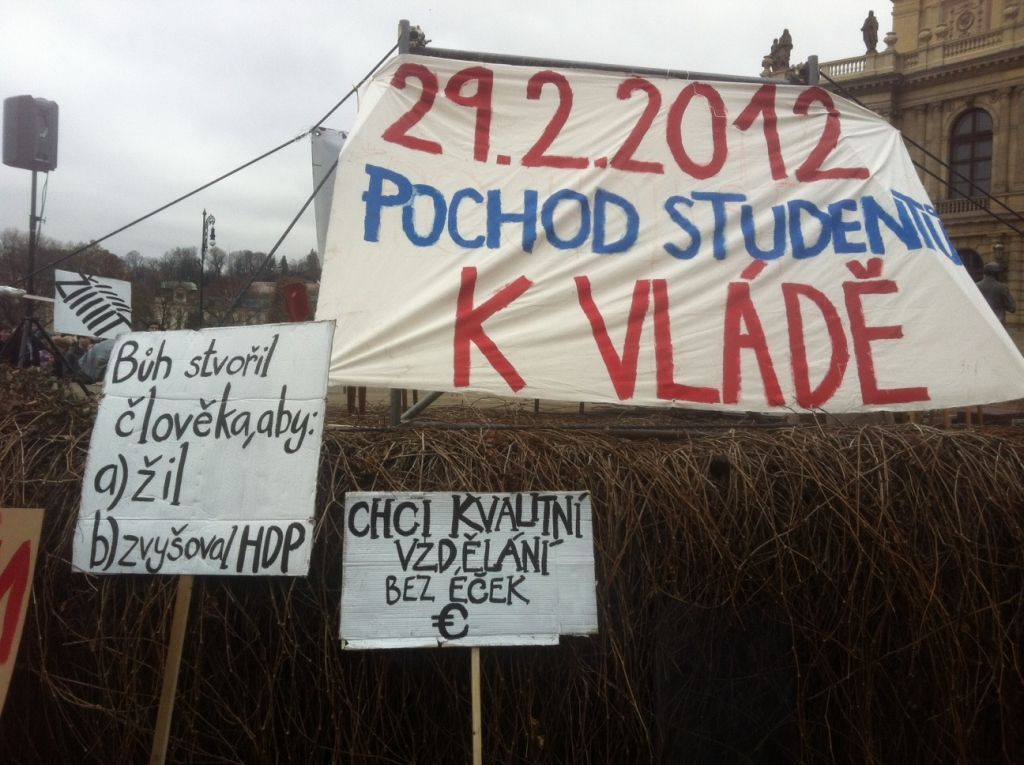 29.2.2012
POCHOD STUDENTŮ
K VLÁDĚ
Bůh stvořil
člověka, aby:
a) žil
b) zvyšoval HDP
CHCI KVALITNÍ
VZDĚLÁNÍ
BEZ ÉČEK
€